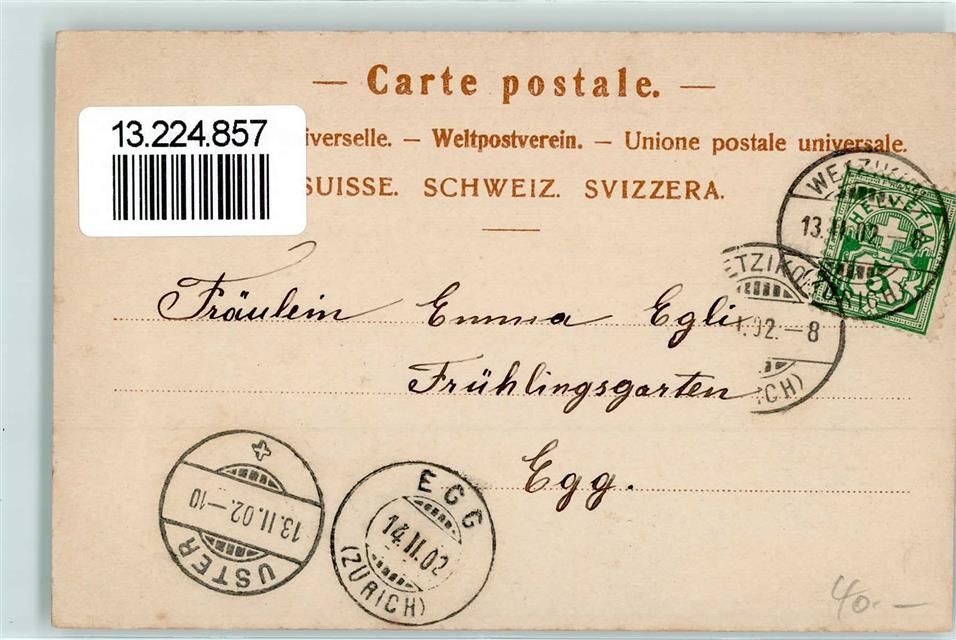 — Carte postale. —
13.224.857
iverselle. — Weltpostverein. — Unione postale universale.
SUISSE. SCHWEIZ. SVIZZERA.
WETZIKON
13.II.02.-8
(ZÜRICH)
HELVETIA
5
ETZIKO
I.02.-8
ICH)
Fräulein Emma Egli
Frühlingsgarten
Egg.
13.II.02.-10
USTER
EGG
14.II.02
(ZÜRICH)
40.—